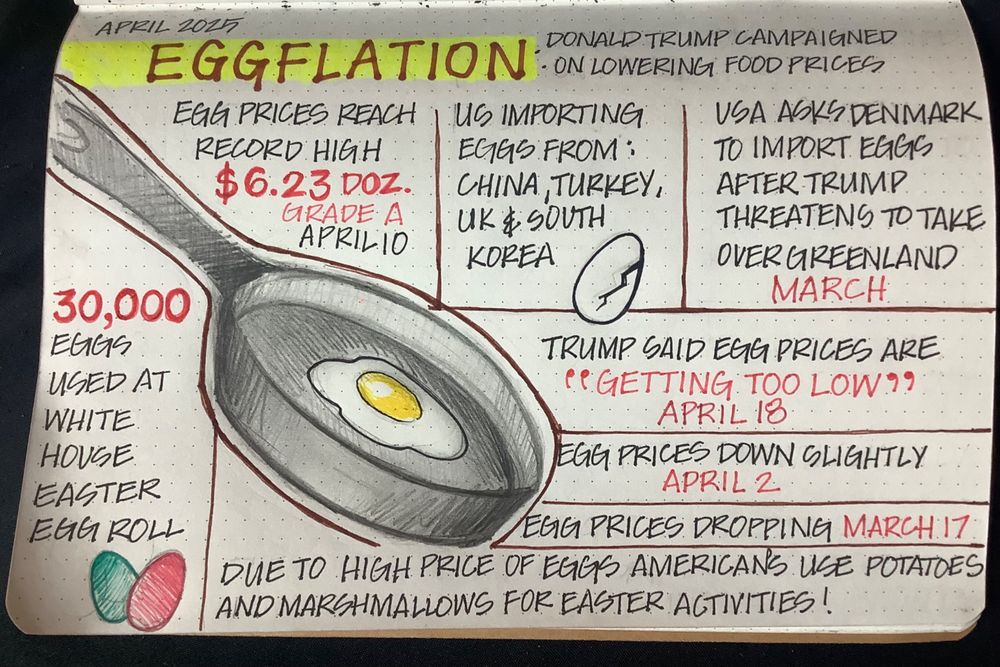 APRIL 2025
EGGFLATION
· DONALD TRUMP CAMPAIGNED
· ON LOWERING FOOD PRICES
EGG PRICES REACH
RECORD HIGH
$6.23 DOZ.
GRADE A
APRIL 10
US IMPORTING
EGGS FROM:
CHINA, TURKEY,
UK & SOUTH
KOREA
USA ASKS DENMARK
TO IMPORT EGGS
AFTER TRUMP
THREATENS TO TAKE
OVER GREENLAND
MARCH
30,000
EGGS
USED AT
WHITE
HOUSE
EASTER
EGG ROLL
TRUMP SAID EGG PRICES ARE
"GETTING TOO LOW"
APRIL 18
EGG PRICES DOWN SLIGHTLY
APRIL 2
EGG PRICES DROPPING MARCH 17
DUE TO HIGH PRICE OF EGGS AMERICANS USE POTATOES
AND MARSHMALLOWS FOR EASTER ACTIVITIES!